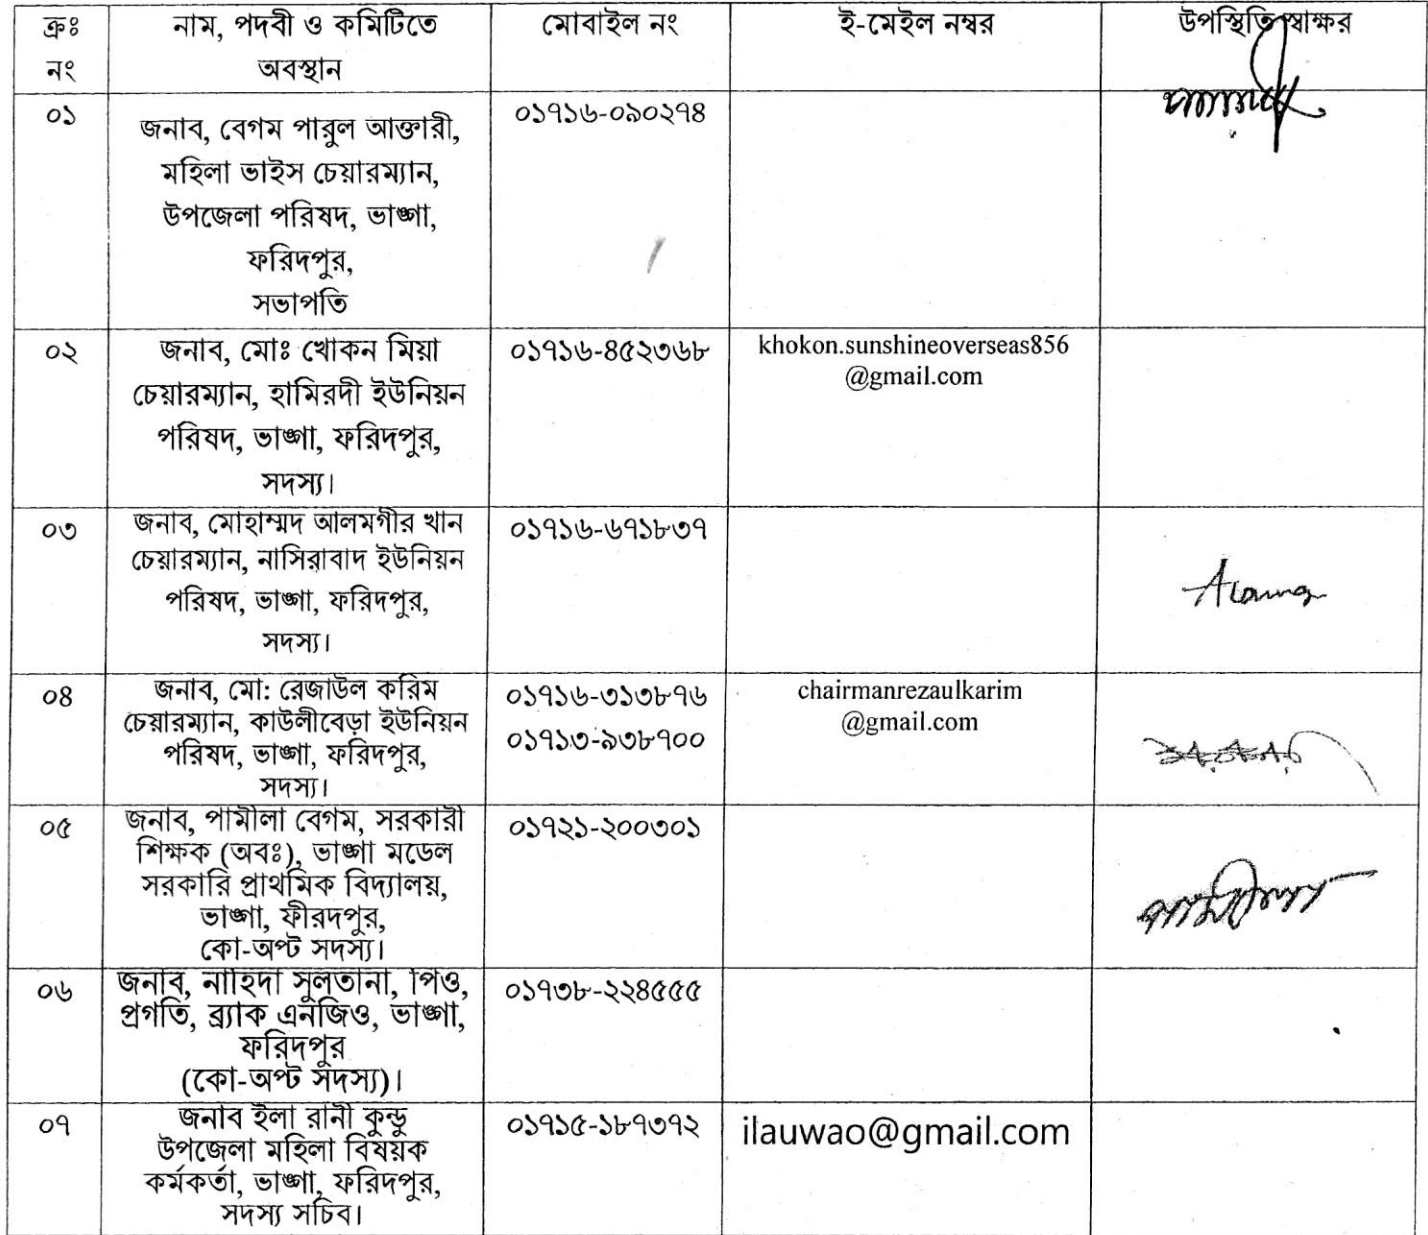 ক্রঃ নং	নাম, পদবী ও কমিটিতে অবস্থান	মোবাইল নং	ই-মেইল নম্বর	উপস্থিতি স্বাক্ষর
০১
জনাব, বেগম পারুল আক্তারী,
মহিলা ভাইস চেয়ারম্যান,
উপজেলা পরিষদ, ভাঙ্গা,
ফরিদপুর,
সভাপতি
০১৭১৬-০৯০২৭৪
০২
জনাব, মোঃ খোকন মিয়া
চেয়ারম্যান, হামিরদী ইউনিয়ন
পরিষদ, ভাঙ্গা, ফরিদপুর,
সদস্য।
০১৭১৬-৪৫২৩৬৮
khokon.sunshineoverseas856
@gmail.com
০৩
জনাব, মোহাম্মদ আলমগীর খান
চেয়ারম্যান, নাসিরাবাদ ইউনিয়ন
পরিষদ, ভাঙ্গা, ফরিদপুর,
সদস্য।
০১৭১৬-৬৭১৮৩৭
০৪
জনাব, মো: রেজাউল করিম
চেয়ারম্যান, কাউলীবেড়া ইউনিয়ন
পরিষদ, ভাঙ্গা, ফরিদপুর,
সদস্য।
০১৭১৬-৩১৩৮৭৬
০১৭১৩-৯৩৮৭০০
chairmanrezaulkarim
@gmail.com
০৫
জনাব, পামীলা বেগম, সরকারী
শিক্ষক (অবঃ), ভাঙ্গা মডেল
সরকারি প্রাথমিক বিদ্যালয়,
ভাঙ্গা, ফীরদপুর,
কো-অপ্ট সদস্য।
০১৭২১-২০০৩০১
পামীলা
০৬
জনাব, নাহিদা সুলতানা, পিও,
প্রগতি, ব্র্যাক এনজিও, ভাঙ্গা,
ফরিদপুর
(কো-অপ্ট সদস্য)।
০১৭৩৮-২২৪৫৫৫
০৭
জনাব ইলা রানী কুন্ডু
উপজেলা মহিলা বিষয়ক
কর্মকর্তা, ভাঙ্গা, ফরিদপুর,
সদস্য সচিব।
০১৭১৫-১৮৭৩৭২
ilauwao@gmail.com